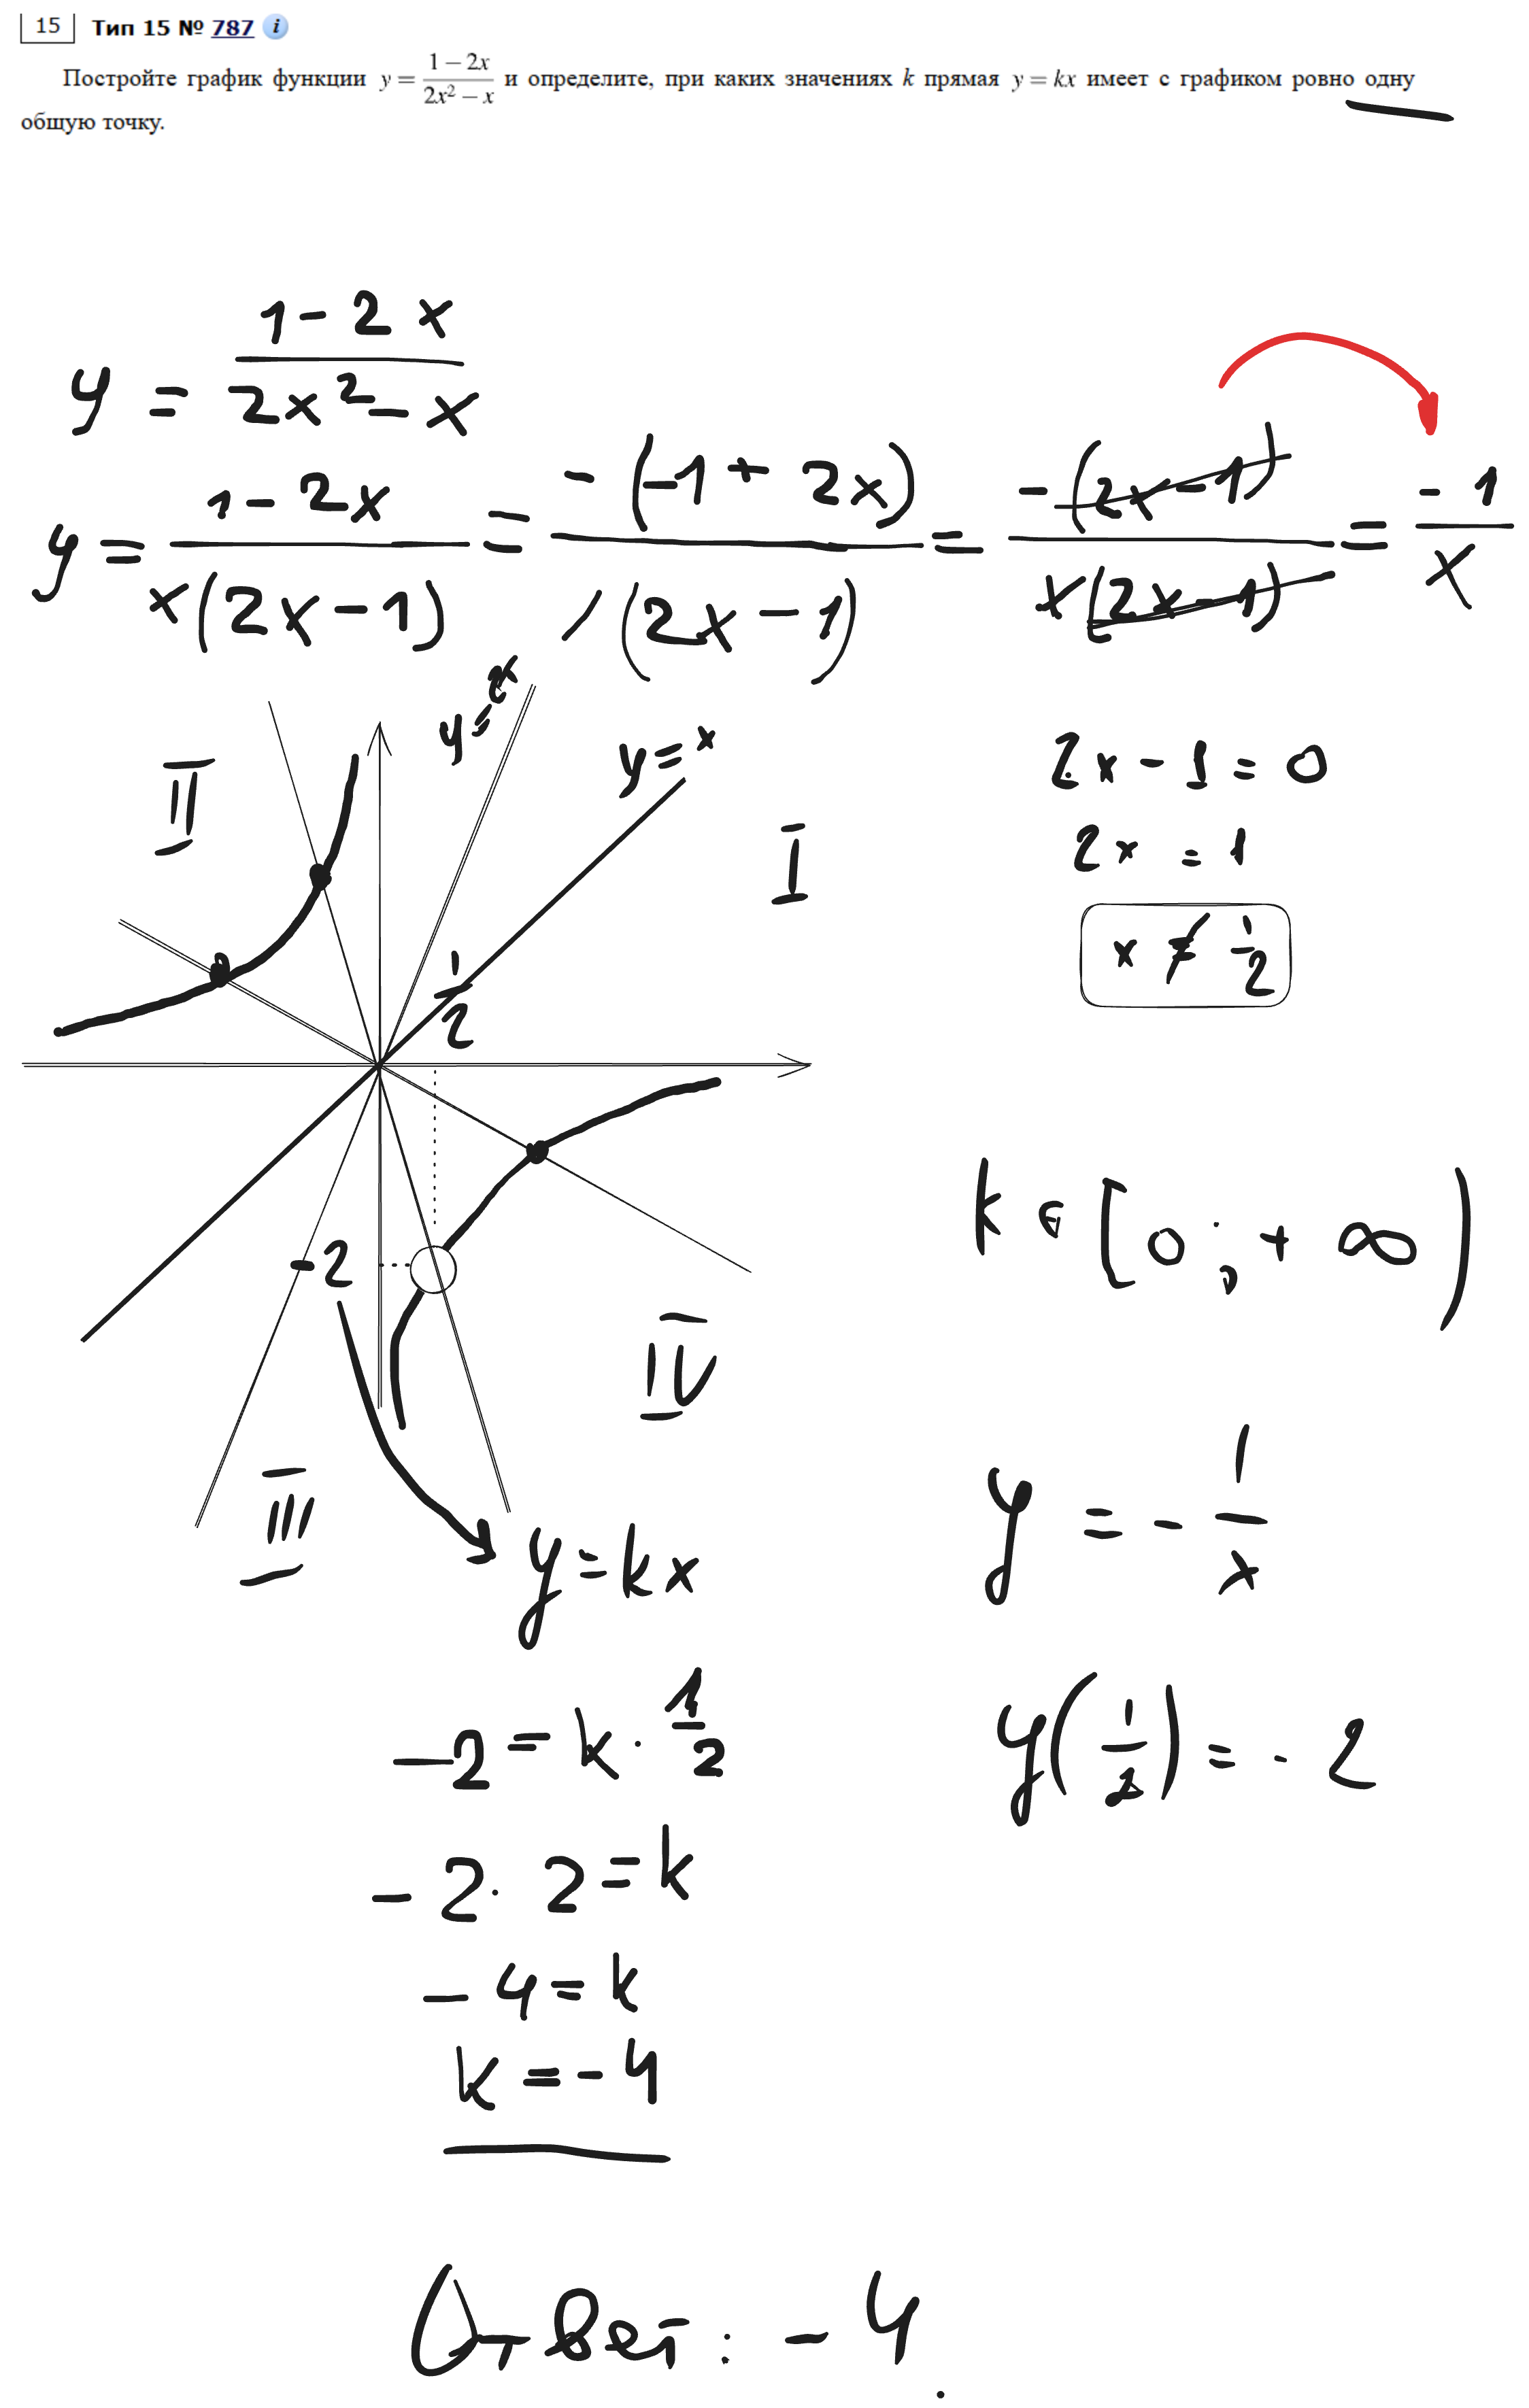 15 Тип 15 № 787 i
Постройте график функции y = \frac{1 − 2x}{2x² − x} и определите, при каких значениях k прямая y = kx имеет с графиком ровно одну
общую точку.
y = \frac{1 - 2x}{2x² - x}
y = \frac{1 - 2x}{x(2x - 1)} = \frac{- (-1 + 2x)}{(2x - 1)} = \frac{- (2x - 1)}{x(2x - 1)} = \frac{- 1}{x}
II
y = x
I
2x - 1 = 0
2x = 1
x ≠ \frac{1}{2}
\frac{1}{2}
k ∈ [0 ; + ∞)
-2
IV
III
y = kx
y = - \frac{1}{x}
-2 = k · \frac{1}{2}
y(\frac{1}{2}) = - 2
- 2 · 2 = k
- 4 = k
k = - 4
Ответ : - 4 .